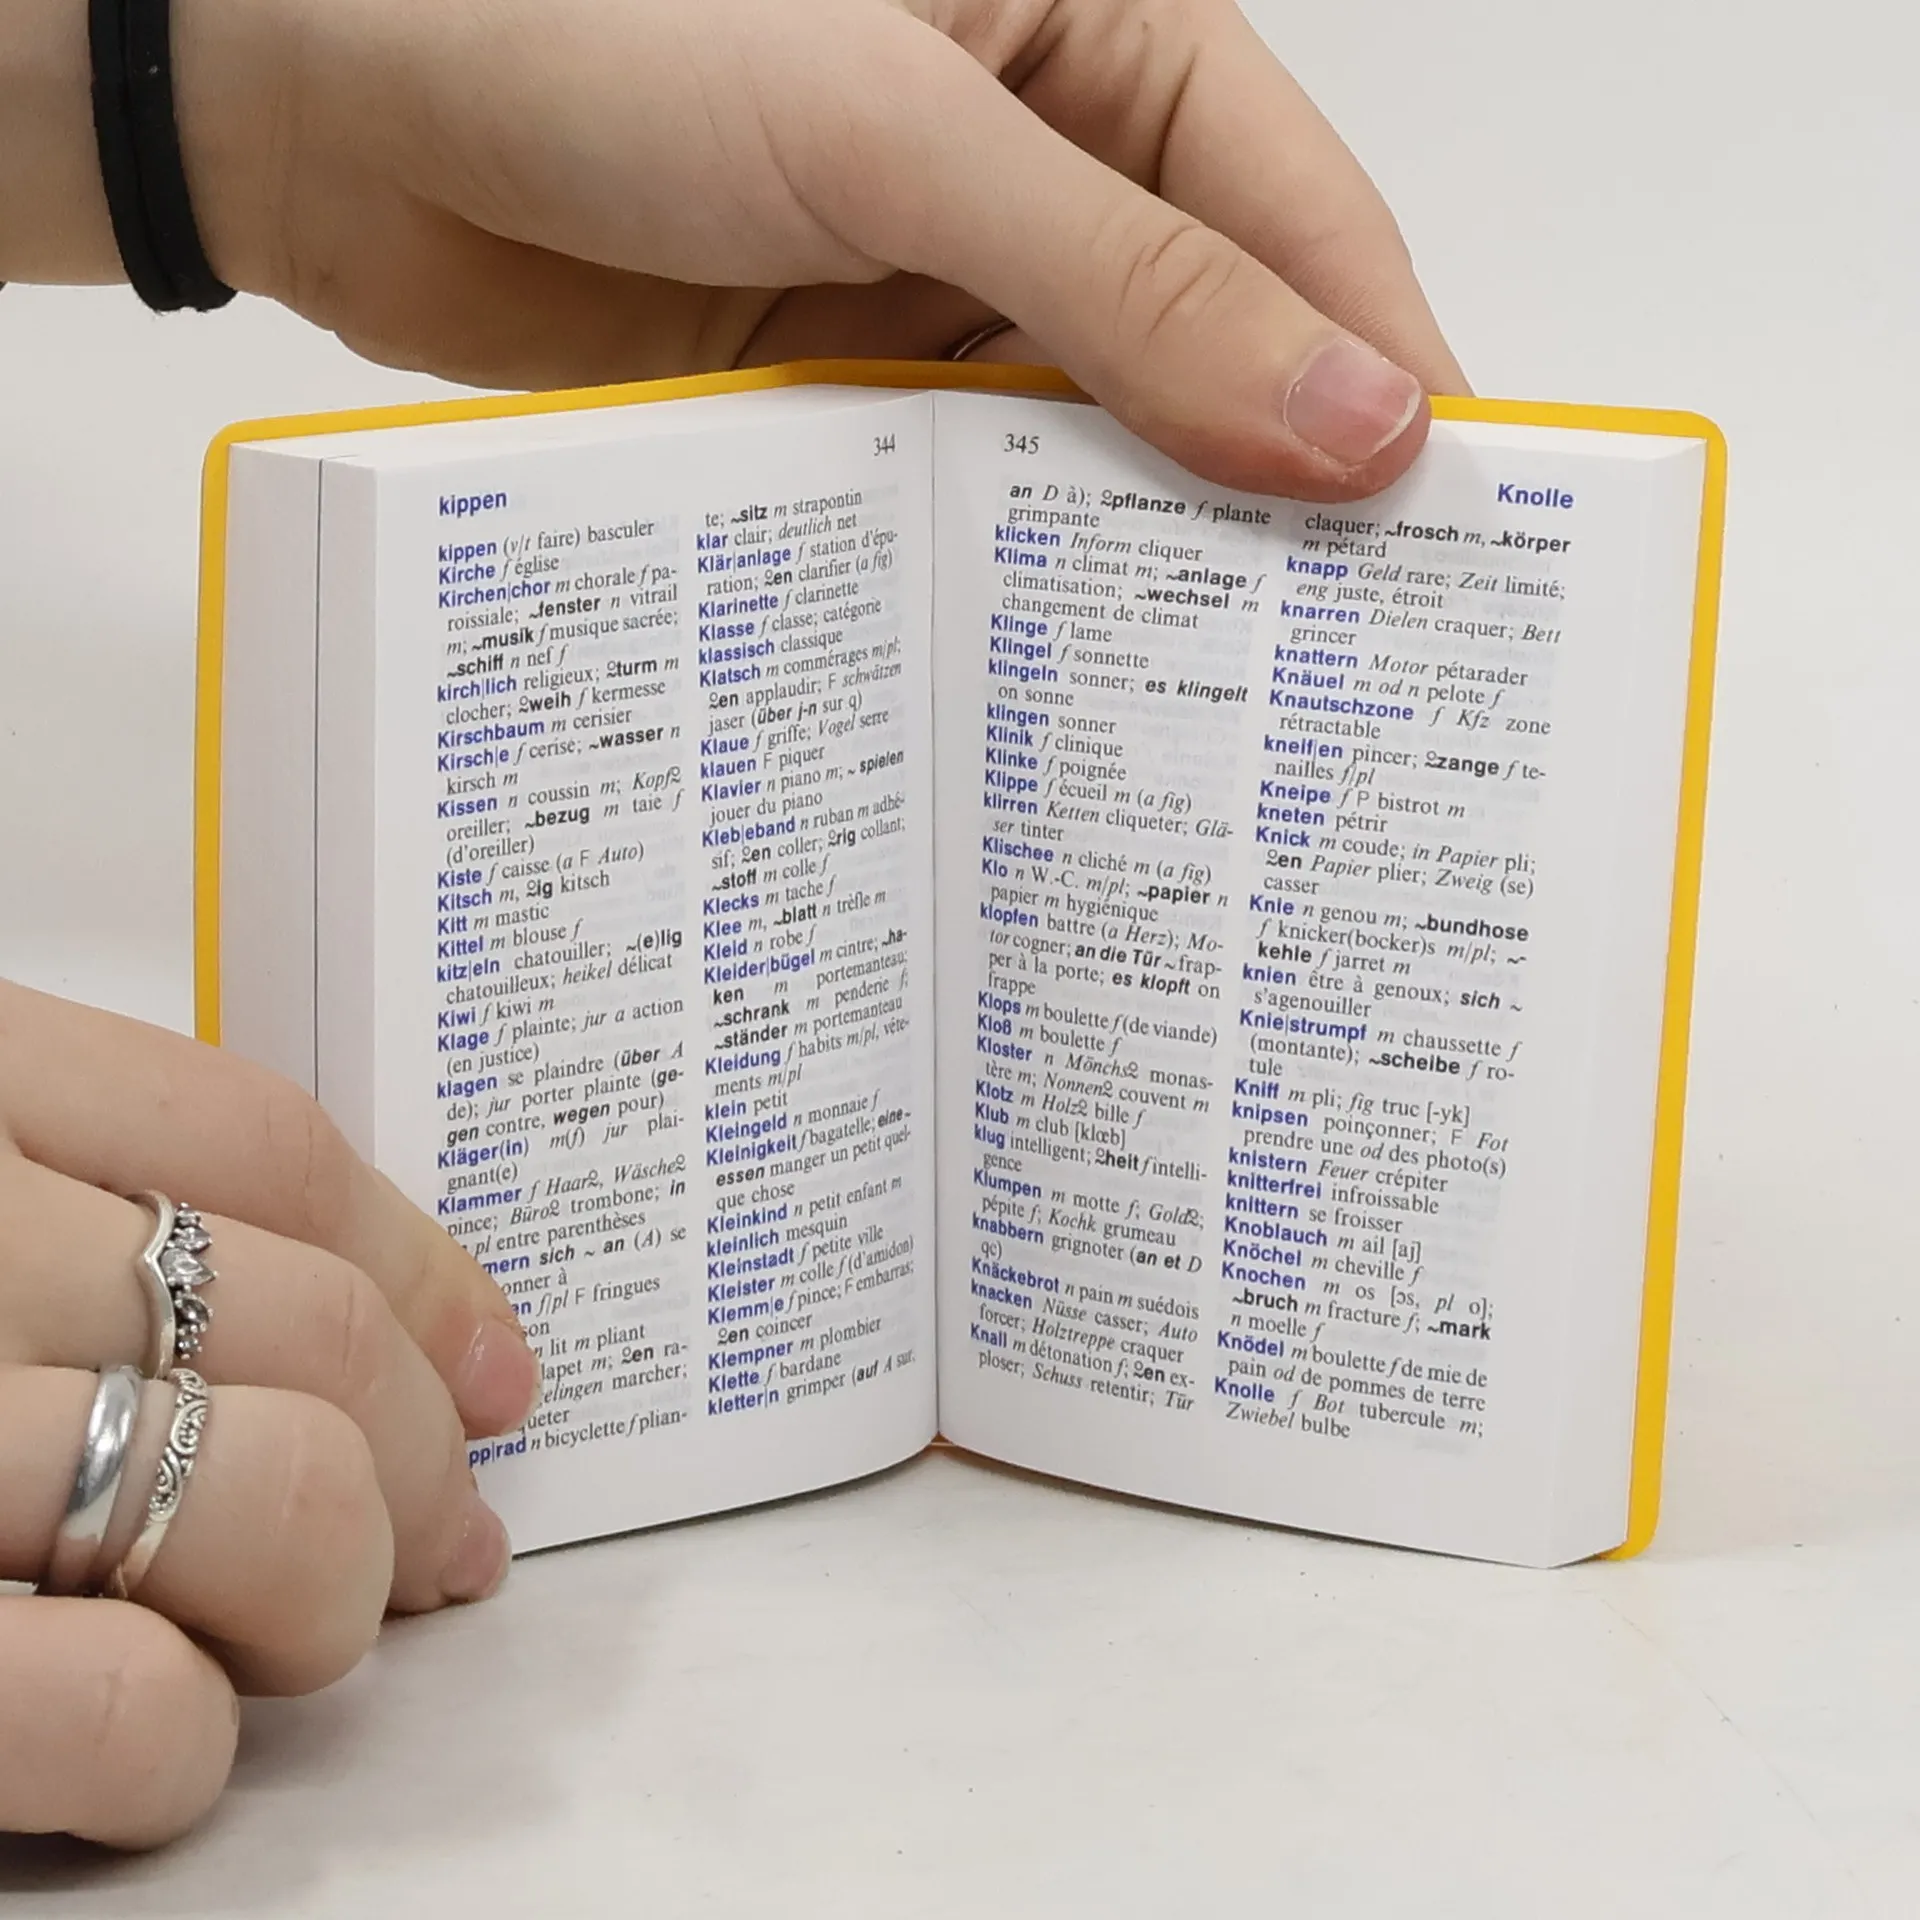 344
kippen
kippen (v/t faire) basculer
Kirche f église
Kirchen|chor m chorale f pa-
roissiale; ~fenster n vitrail
m; ~musik f musique sacrée;
~schiff n nef f
kirch|lich religieux; ⚲turm m
clocher; ⚲weih f kermesse
Kirschbaum m cerisier
Kirsch|e f cerise; ~wasser n
kirsch m
Kissen n coussin m; Kopf⚲
oreiller; ~bezug m taie f
(d'oreiller)
Kiste f caisse (a F Auto)
Kitsch m, ⚲ig kitsch
Kitt m mastic
Kittel m blouse f
kitz|eln chatouiller; ~(e)lig
chatouilleux; heikel délicat
Kiwi f kiwi m
Klage f plainte; jur a action
(en justice)
klagen se plaindre (über A
de); jur porter plainte (ge-
gen contre, wegen pour)
Kläger(in) m(f) jur plai-
gnant(e)
Klammer f Haar⚲, Wäsche⚲
pince; Büro⚲ trombone; in
pl entre parenthèses
mern sich ~ an (A) se
onner à
en f/pl F fringues
son
n lit m pliant
lapet m; ⚲en ra-
elingen marcher;
queter
pp|rad n bicyclette f plian-
te; ~sitz m strapontin
klar clair; deutlich net
Klär|anlage f station d'épu-
ration; ⚲en clarifier (a fig)
Klarinette f clarinette
Klasse f classe; catégorie
klassisch classique
Klatsch m commérages m/pl;
⚲en applaudir; F schwätzen
jaser (über j-n sur q)
Klaue f griffe; Vogel serre
klauen F piquer
Klavier n piano m; ~ spielen
jouer du piano
Kleb|eband n ruban m adhé-
sif; ⚲en coller; ⚲rig collant;
~stoff m colle f
Klecks m tache f
Klee m, ~blatt n trèfle m
Kleid n robe f
Kleider|bügel m cintre; ~ha-
ken m portemanteau;
~schrank m penderie f;
~ständer m portemanteau
Kleidung f habits m/pl, vête-
ments m/pl
klein petit
Kleingeld n monnaie f
Kleinigkeit f bagatelle; eine ~
essen manger un petit quel-
que chose
Kleinkind n petit enfant m
kleinlich mesquin
Kleinstadt f petite ville
Kleister m colle f (d'amidon)
Klemm|e f pince; F embarras;
⚲en coincer
Klempner m plombier
Klette f bardane
kletter|n grimper (auf A sur,
345
Knolle
an D à); ⚲pflanze f plante
grimpante
klicken Inform cliquer
Klima n climat m; ~anlage f
climatisation; ~wechsel m
changement de climat
Klinge f lame
Klingel f sonnette
klingeln sonner; es klingelt
on sonne
klingen sonner
Klinik f clinique
Klinke f poignée
Klippe f écueil m (a fig)
klirren Ketten cliqueter; Glä-
ser tinter
Klischee n cliché m (a fig)
Klo n W.-C. m/pl; ~papier n
papier m hygiénique
klopfen battre (a Herz); Mo-
tor cogner; an die Tür ~ frap-
per à la porte; es klopft on
frappe
Klops m boulette f (de viande)
Kloß m boulette f
Kloster n Mönchs⚲ monas-
tère m; Nonnen⚲ couvent m
Klotz m Holz⚲ bille f
Klub m club [klœb]
klug intelligent; ⚲heit f intelli-
gence
Klumpen m motte f; Gold⚲;
pépite f; Kochk grumeau
knabbern grignoter (an et D
qc)
Knäckebrot n pain m suédois
knacken Nüsse casser; Auto
forcer; Holztreppe craquer
Knall m détonation f; ⚲en ex-
ploser; Schuss retentir; Tür
claquer; ~frosch m, ~körper
m pétard
knapp Geld rare; Zeit limité;
eng juste, étroit
knarren Dielen craquer; Bett
grincer
knattern Motor pétarader
Knäuel m od n pelote f
Knautschzone f Kfz zone
rétractable
kneif|en pincer; ⚲zange f te-
nailles f/pl
Kneipe f F bistrot m
kneten pétrir
Knick m coude; in Papier pli;
⚲en Papier plier; Zweig (se)
casser
Knie n genou m; ~bundhose
f knicker(bocker)s m/pl; ~-
kehle f jarret m
knien être à genoux; sich ~
s'agenouiller
Knie|strumpf m chaussette f
(montante); ~scheibe f ro-
tule
Kniff m pli; fig truc [-yk]
knipsen poinçonner; F Fot
prendre une od des photo(s)
knistern Feuer crépiter
knitterfrei infroissable
knittern se froisser
Knoblauch m ail [aj]
Knöchel m cheville f
Knochen m os [ɔs, pl o];
~bruch m fracture f; ~mark
n moelle f
Knödel m boulette f de mie de
pain od de pommes de terre
Knolle f Bot tubercule m;
Zwiebel bulbe